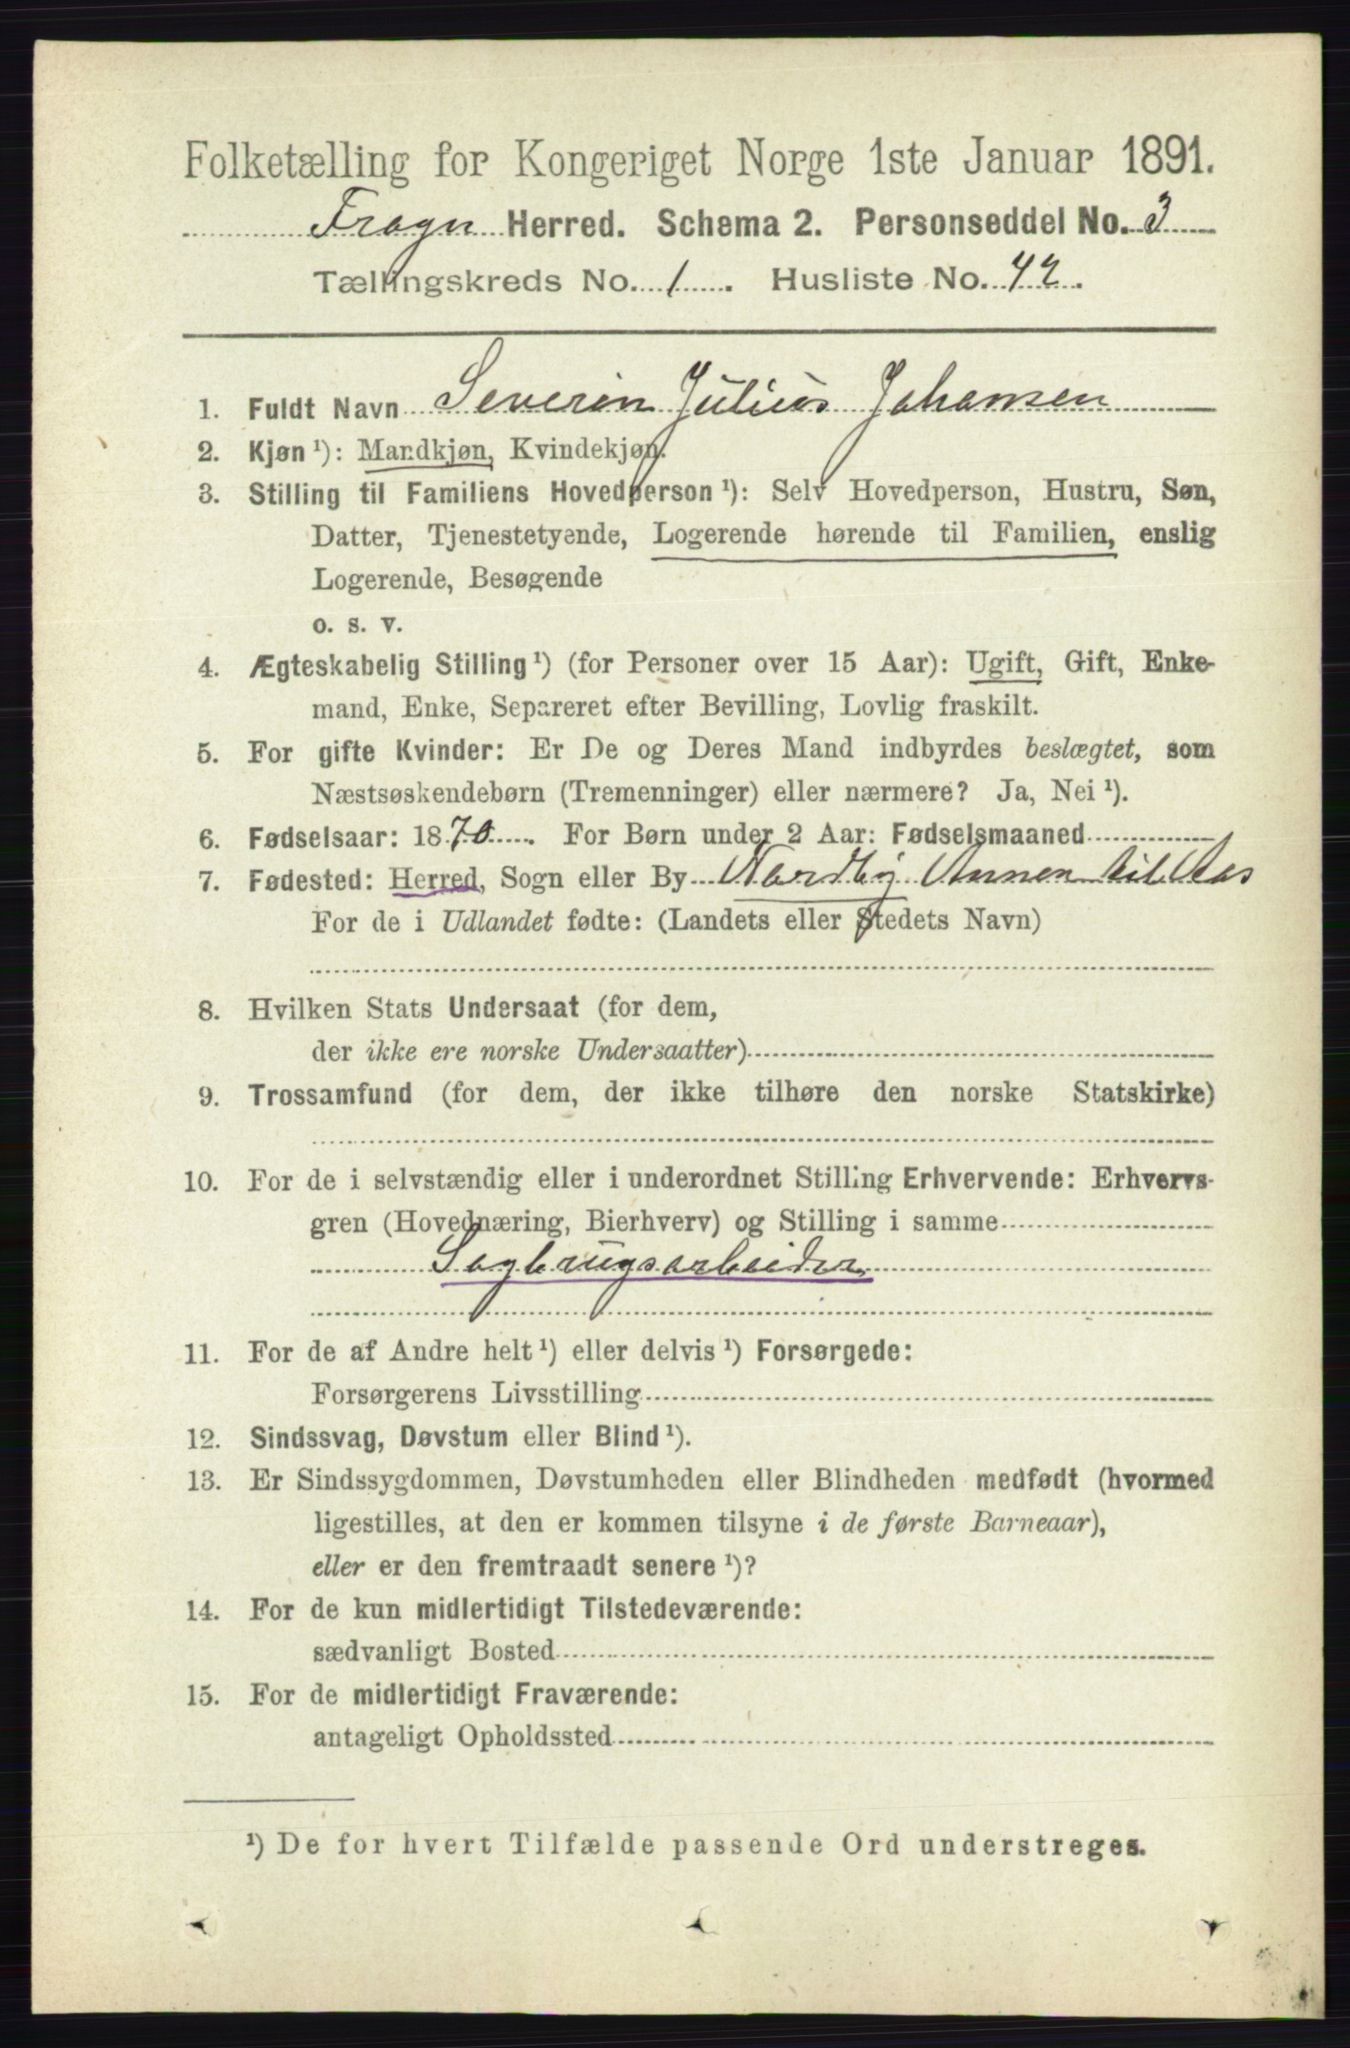 Folketælling for Kongeriget Norge 1ste Januar 1891.
Frogn Herred. Schema 2. Personseddel No. 3
Tællingskreds No. 1. Husliste No. 42.
1. Fuldt Navn Severin Julius Johansen
2. Kjøn¹): Mandkjøn, Kvindekjøn.
3. Stilling til Familiens Hovedperson¹): Selv Hovedperson, Hustru, Søn,
Datter, Tjenestetyende, Logerende hørende til Familien, enslig
Logerende, Besøgende
o. s. v.
4. Ægteskabelig Stilling¹) (for Personer over 15 Aar): Ugift, Gift, Enke-
mand, Enke, Separeret efter Bevilling, Lovlig fraskilt.
5. For gifte Kvinder: Er De og Deres Mand indbyrdes beslægtet, som
Næstsøskendebørn (Tremenninger) eller nærmere? Ja, Nei¹).
6. Fødselsaar: 1870. For Børn under 2 Aar: Fødselsmaaned
7. Fødested: Herred, Sogn eller By Nordby Annex til Aas
For de i Udlandet fødte: (Landets eller Stedets Navn)
8. Hvilken Stats Undersaat (for dem,
der ikke ere norske Undersaatter)
9. Trossamfund (for dem, der ikke tilhøre den norske Statskirke)
10. For de i selvstændig eller i underordnet Stilling Erhvervende: Erhvervs-
gren (Hovednæring, Bierhverv) og Stilling i samme
Sagbrugsarbeider
11. For de af Andre helt¹) eller delvis¹) Forsørgede:
Forsørgerens Livsstilling
12. Sindssvag, Døvstum eller Blind¹).
13. Er Sindssygdommen, Døvstumheden eller Blindheden medfødt (hvormed
ligestilles, at den er kommen tilsyne i de første Barneaar),
eller er den fremtraadt senere¹)?
14. For de kun midlertidigt Tilstedeværende:
sædvanligt Bosted
15. For de midlertidigt Fraværende:
antageligt Opholdssted
¹) De for hvert Tilfælde passende Ord understreges.